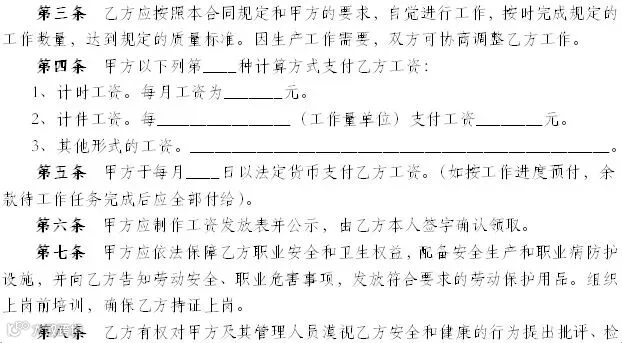 第三条 乙方应按照本合同规定和甲方的要求，自觉进行工作，按时完成规定的
工作数量，达到规定的质量标准。因生产工作需要，双方可协商调整乙方工作。
第四条 甲方以下列第____种计算方式支付乙方工资：
1、计时工资。每月工资为_______元。
2、计件工资。每________________（工作量单位）支付工资________元。
3、其他形式的工资。__________________________________________________。
第五条 甲方于每月____日以法定货币支付乙方工资。（如按工作进度预付，余
款待工作任务完成后应全部付给）。
第六条 甲方应制作工资发放表并公示，由乙方本人签字确认领取。
第七条 甲方应依法保障乙方职业安全和卫生权益，配备安全生产和职业病防护
设施，并向乙方告知劳动安全、职业危害事项，发放符合要求的劳动保护用品。组织
上岗前培训，确保乙方持证上岗。
第八条 乙方有权对甲方及其管理人员漠视乙方安全和健康的行为提出批评、检